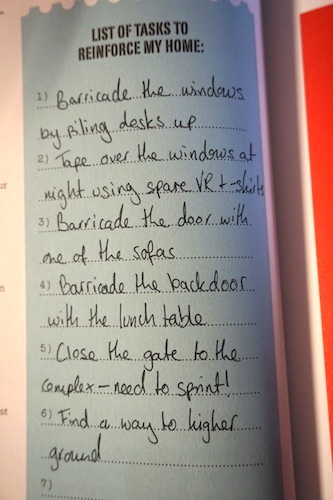 LIST OF TASKS TO
REINFORCE MY HOME:
1) Barricade the windows
by piling desks up
2) Tape over the windows at
night using spare VR t-shirts
3) Barricade the door with
one of the sofas
4) Barricade the backdoor
with the lunch table
5) Close the gate to the
complex - need to sprint!
6) Find a way to higher
ground
7)